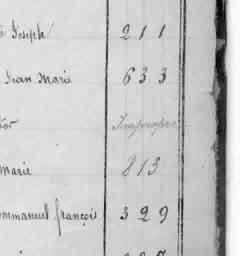 Joseph 211
Jean Marie 633
tor
Marie 813
Emmanuel françois 329